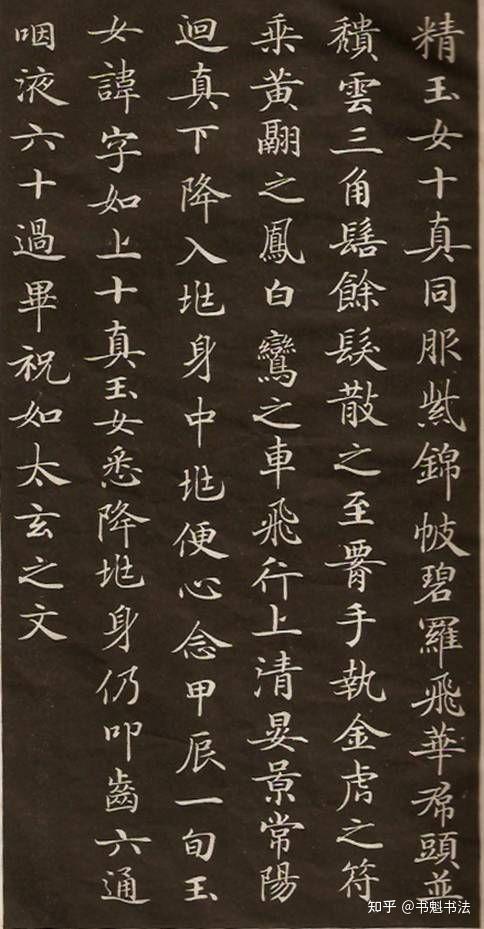 精玉女十真同服紫錦帔碧羅飛華帬頭並
積雲三角髻餘髮散之至𦝫手執金虎之符
乘黃翮之鳳白鸞之車飛行上清晏景常陽
迴真下降入兆身中兆便心念甲辰一旬玉
女諱字如上十真玉女悉降兆身仍叩齒六通
咽液六十過畢祝如太玄之文
知乎 @书魁书法